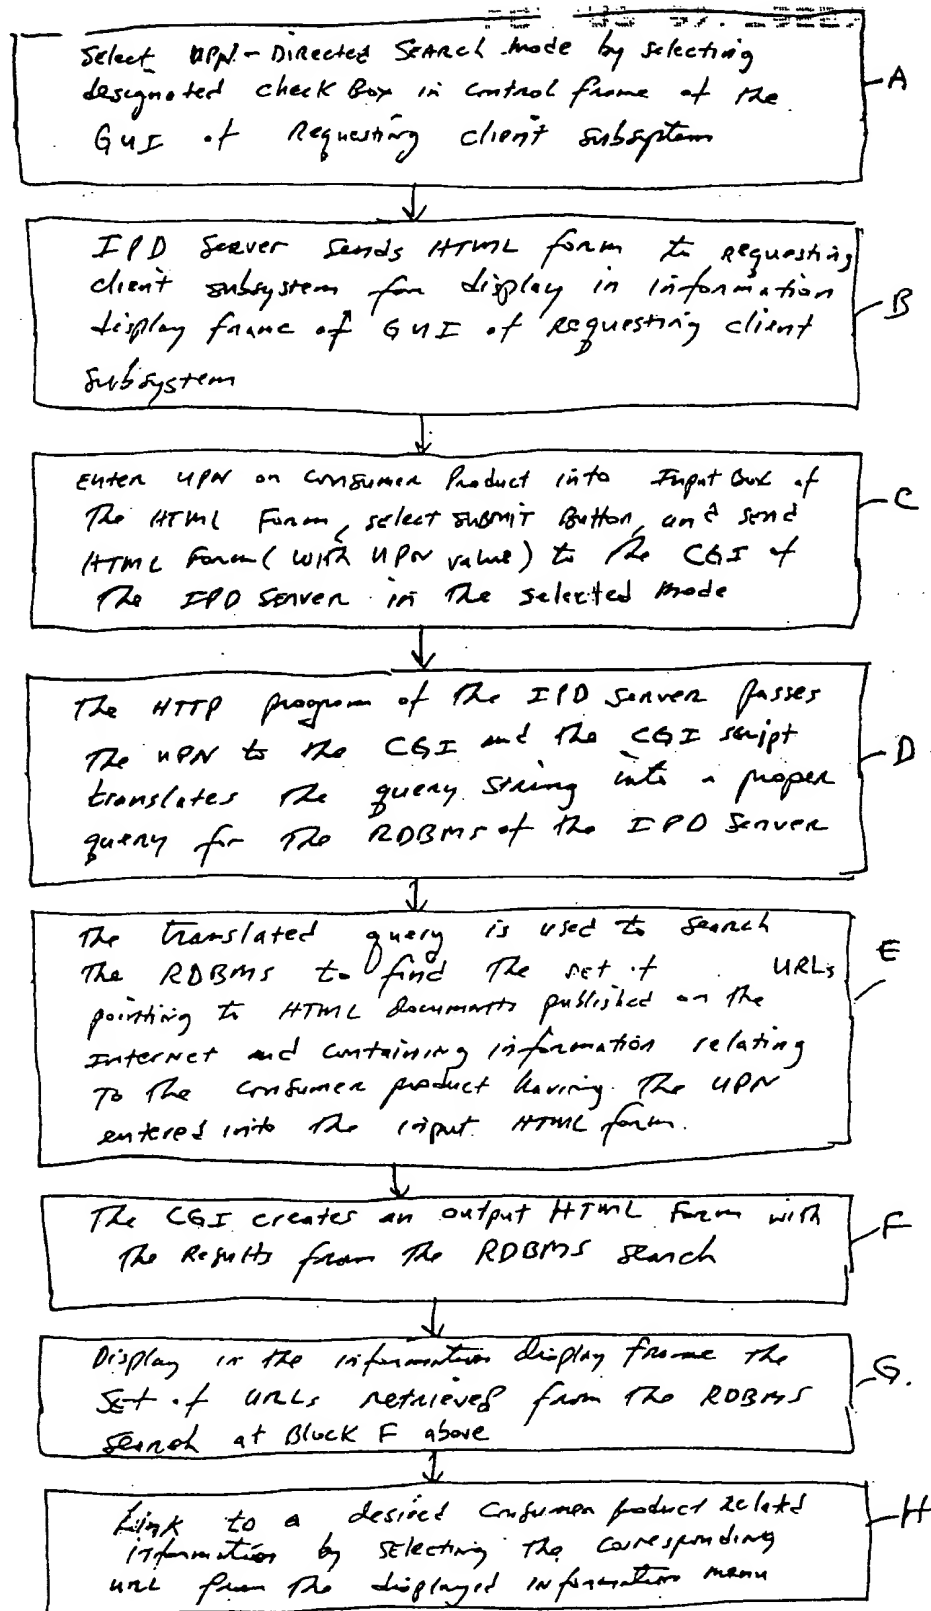 Select UPN-Directed Search mode by selecting
designated check Box in control frame of the
GUI of Requesting client subsystem
A
IPD Server sends HTML form to requesting
client subsystem for display in information
display frame of GUI of requesting client
subsystem
B
Enter UPN on consumer product into Input Box of
the HTML Form, select SUBMIT Button, and send
HTML Form (with UPN value) to the CGI of
the IPD Server in the selected mode
C
The HTTP program of the IPD server passes
the UPN to the CGI and the CGI script
translates the query string into a proper
query for the RDBMS of the IPD Server
D
The translated query is used to search
the RDBMS to find the set of URLs
pointing to HTML documents published on the
Internet and containing information relating
To the consumer product having the UPN
entered into the input HTML form.
E
The CGI creates an output HTML Form with
the Results from the RDBMS search
F
Display in the information display frame the
Set of URLs retrieved from the RDBMS
Search at Block F above
G.
Link to a desired consumer product related
information by selecting the corresponding
URL from the displayed information menu
H